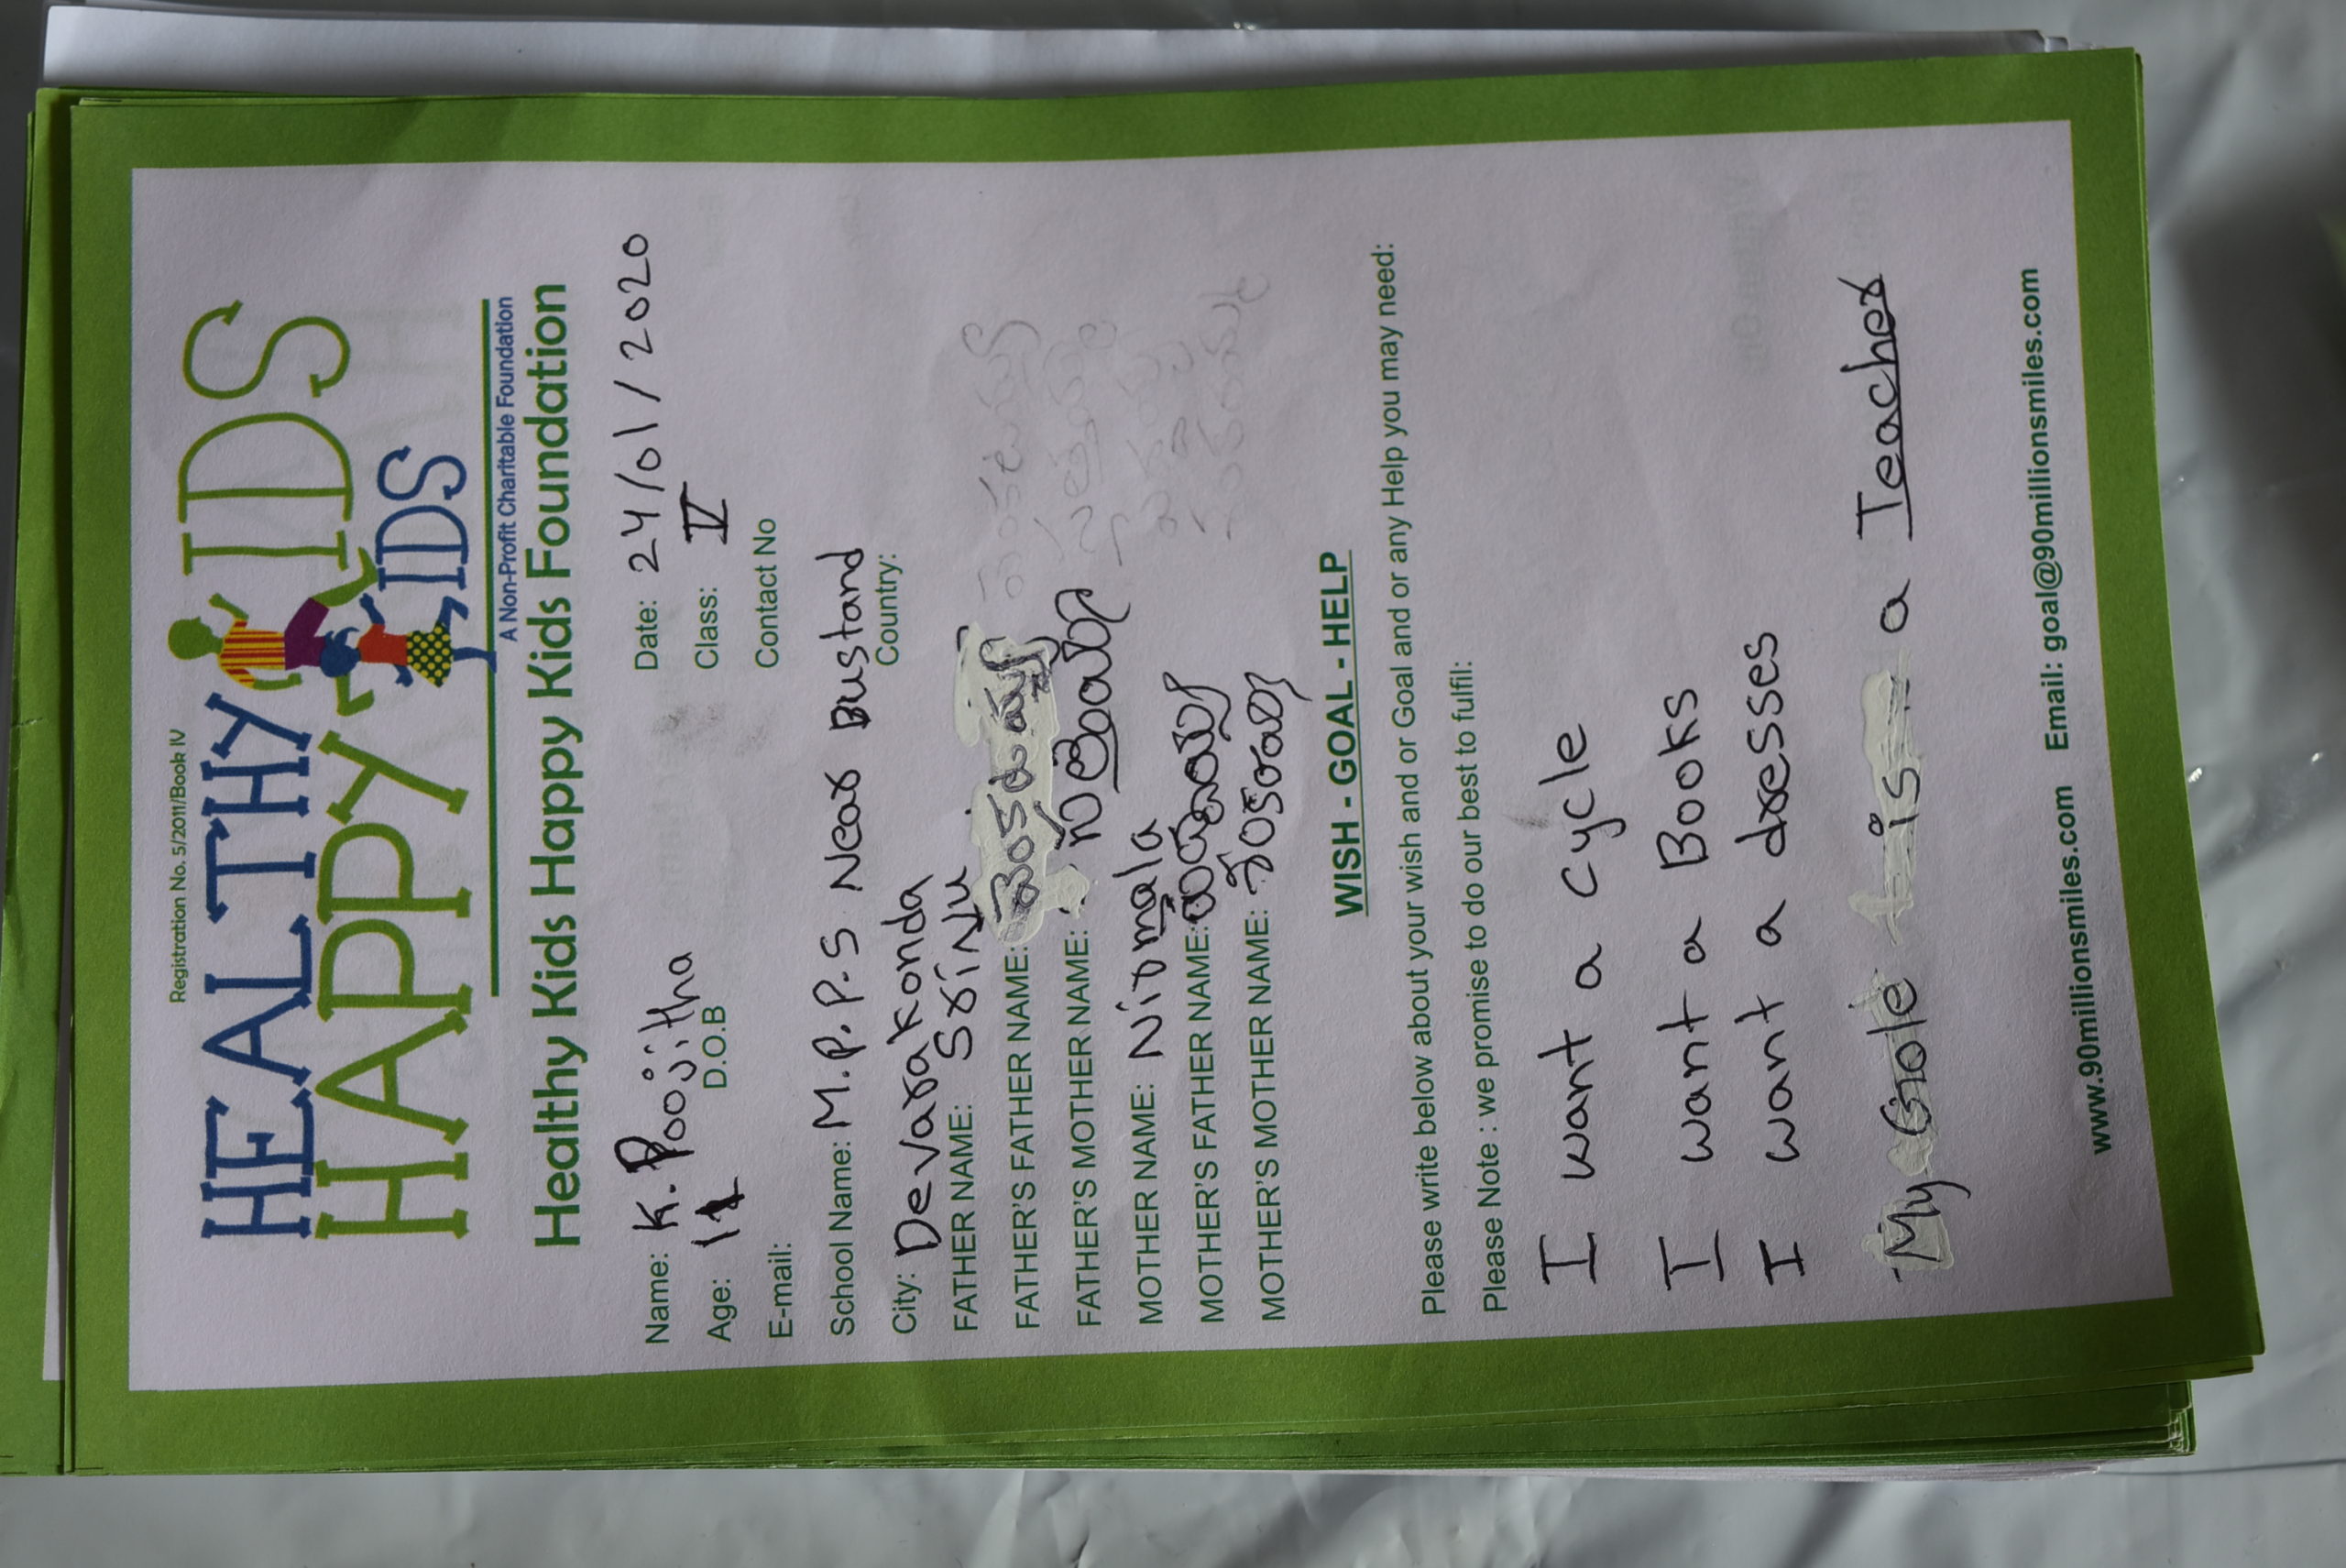 Registration No. 5/2011/Book IV
HEALTHY KIDS
HAPPY KIDS
A Non-Profit Charitable Foundation
Healthy Kids Happy Kids Foundation
Name: K. Poojitha Date: 24/01/2020
Age: 11 D.O.B Class: V
E-mail: Contact No
School Name: M.P.P.S Near Bustand
City: Devarakonda Country:
FATHER NAME: Srinu
FATHER'S FATHER NAME:
FATHER'S MOTHER NAME:
MOTHER NAME: Nirmala
MOTHER'S FATHER NAME:
MOTHER'S MOTHER NAME:
WISH - GOAL - HELP
Please write below about your wish and or Goal and or any Help you may need:
Please Note : we promise to do our best to fulfil:
I want a cycle
I want a Books
I want a dresses
My Gole is a Teacher
www.90millionsmiles.com Email: goal@90millionsmiles.com